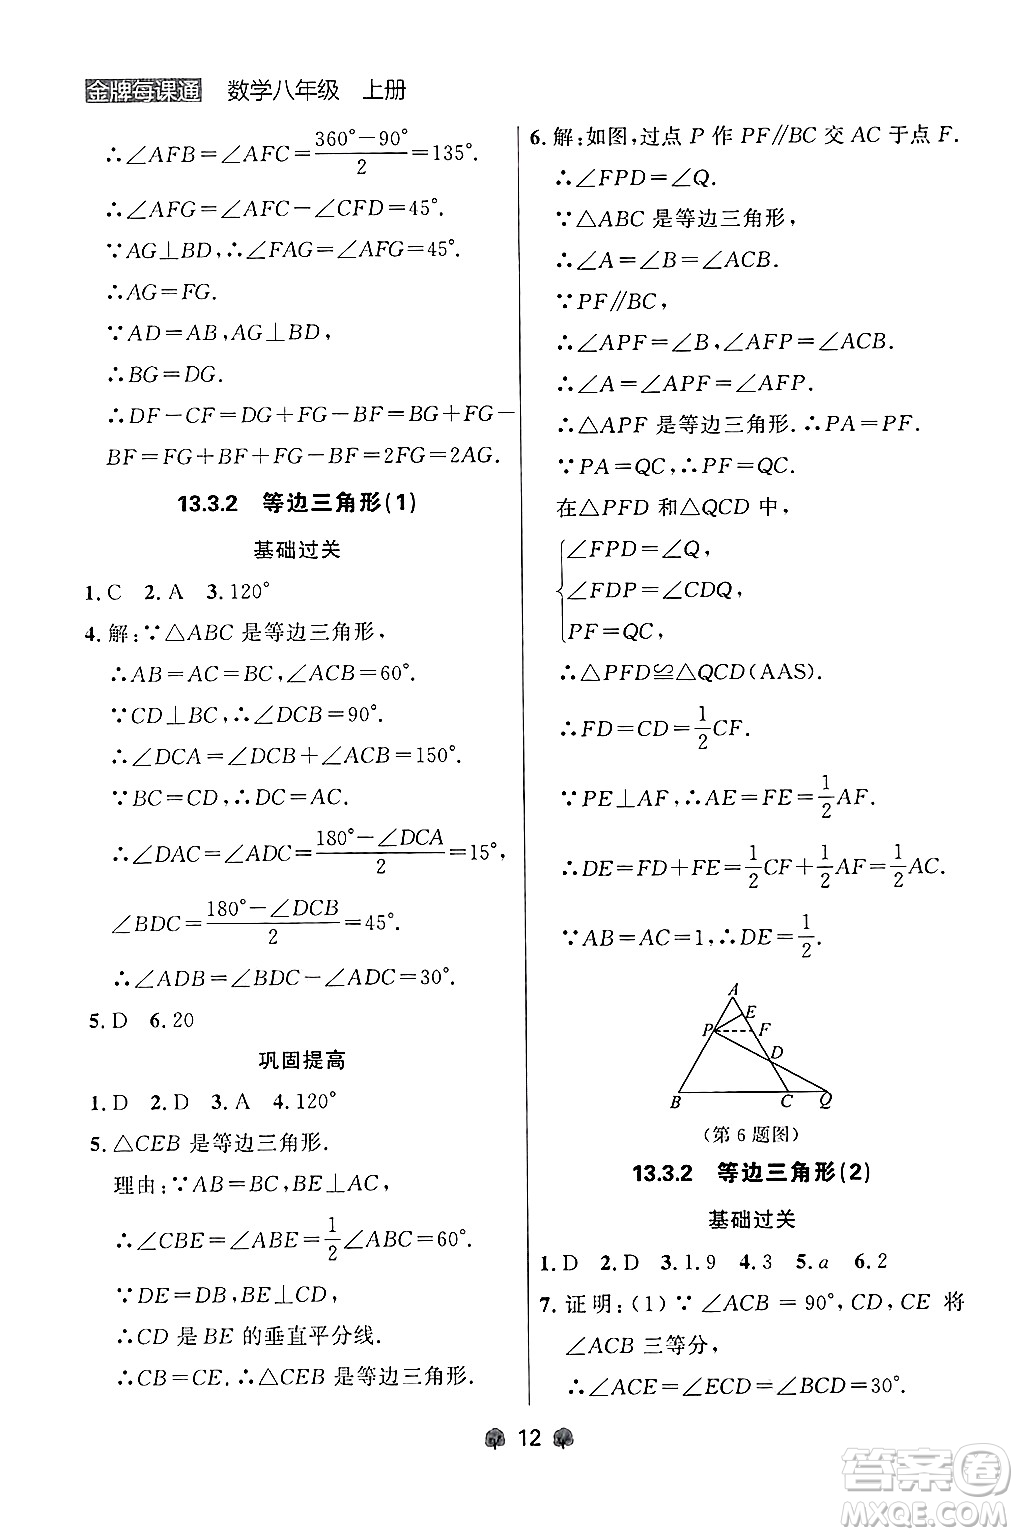 金牌每课通 数学八年级 上册
∴∠AFB=∠AFC=\frac{360°-90°}{2}=135°.
∴∠AFG=∠AFC-∠CFD=45°.
∵AG⊥BD,∴∠FAG=∠AFG=45°.
∴AG=FG.
∵AD=AB,AG⊥BD,
∴BG=DG.
∴DF-CF=DG+FG-BF=BG+FG-
BF=FG+BF+FG-BF=2FG=2AG.
13.3.2 等边三角形(1)
基础过关
1.C 2.A 3.120°
4.解:∵△ABC是等边三角形,
∴AB=AC=BC,∠ACB=60°.
∵CD⊥BC,∴∠DCB=90°.
∴∠DCA=∠DCB+∠ACB=150°.
∵BC=CD,∴DC=AC.
∴∠DAC=∠ADC=\frac{180°-∠DCA}{2}=15°,
∠BDC=\frac{180°-∠DCB}{2}=45°.
∴∠ADB=∠BDC-∠ADC=30°.
5.D 6.20
巩固提高
1.D 2.D 3.A 4.120°
5.△CEB是等边三角形.
理由:∵AB=BC,BE⊥AC,
∴∠CBE=∠ABE=\frac{1}{2}∠ABC=60°.
∵DE=DB,BE⊥CD,
∴CD是BE的垂直平分线.
∴CB=CE.∴△CEB是等边三角形.
6.解:如图,过点P作PF∥BC交AC于点F.
∴∠FPD=∠Q.
∵△ABC是等边三角形,
∴∠A=∠B=∠ACB.
∵PF∥BC,
∴∠APF=∠B,∠AFP=∠ACB.
∴∠A=∠APF=∠AFP.
∴△APF是等边三角形.∴PA=PF.
∵PA=QC,∴PF=QC.
在△PFD和△QCD中,
∠FPD=∠Q,
∠FDP=∠CDQ,
PF=QC,
∴△PFD≌△QCD(AAS).
∴FD=CD=\frac{1}{2}CF.
∵PE⊥AF,∴AE=FE=\frac{1}{2}AF.
∴DE=FD+FE=\frac{1}{2}CF+\frac{1}{2}AF=\frac{1}{2}AC.
∵AB=AC=1,∴DE=\frac{1}{2}.
A
E
P F
D
B C Q
(第6题图)
13.3.2 等边三角形(2)
基础过关
1.D 2.D 3.1.9 4.3 5.a 6.2
7.证明:(1)∵∠ACB=90°,CD,CE将
∠ACB三等分,
∴∠ACE=∠ECD=∠BCD=30°.
12
答案圈
MXQE.COM